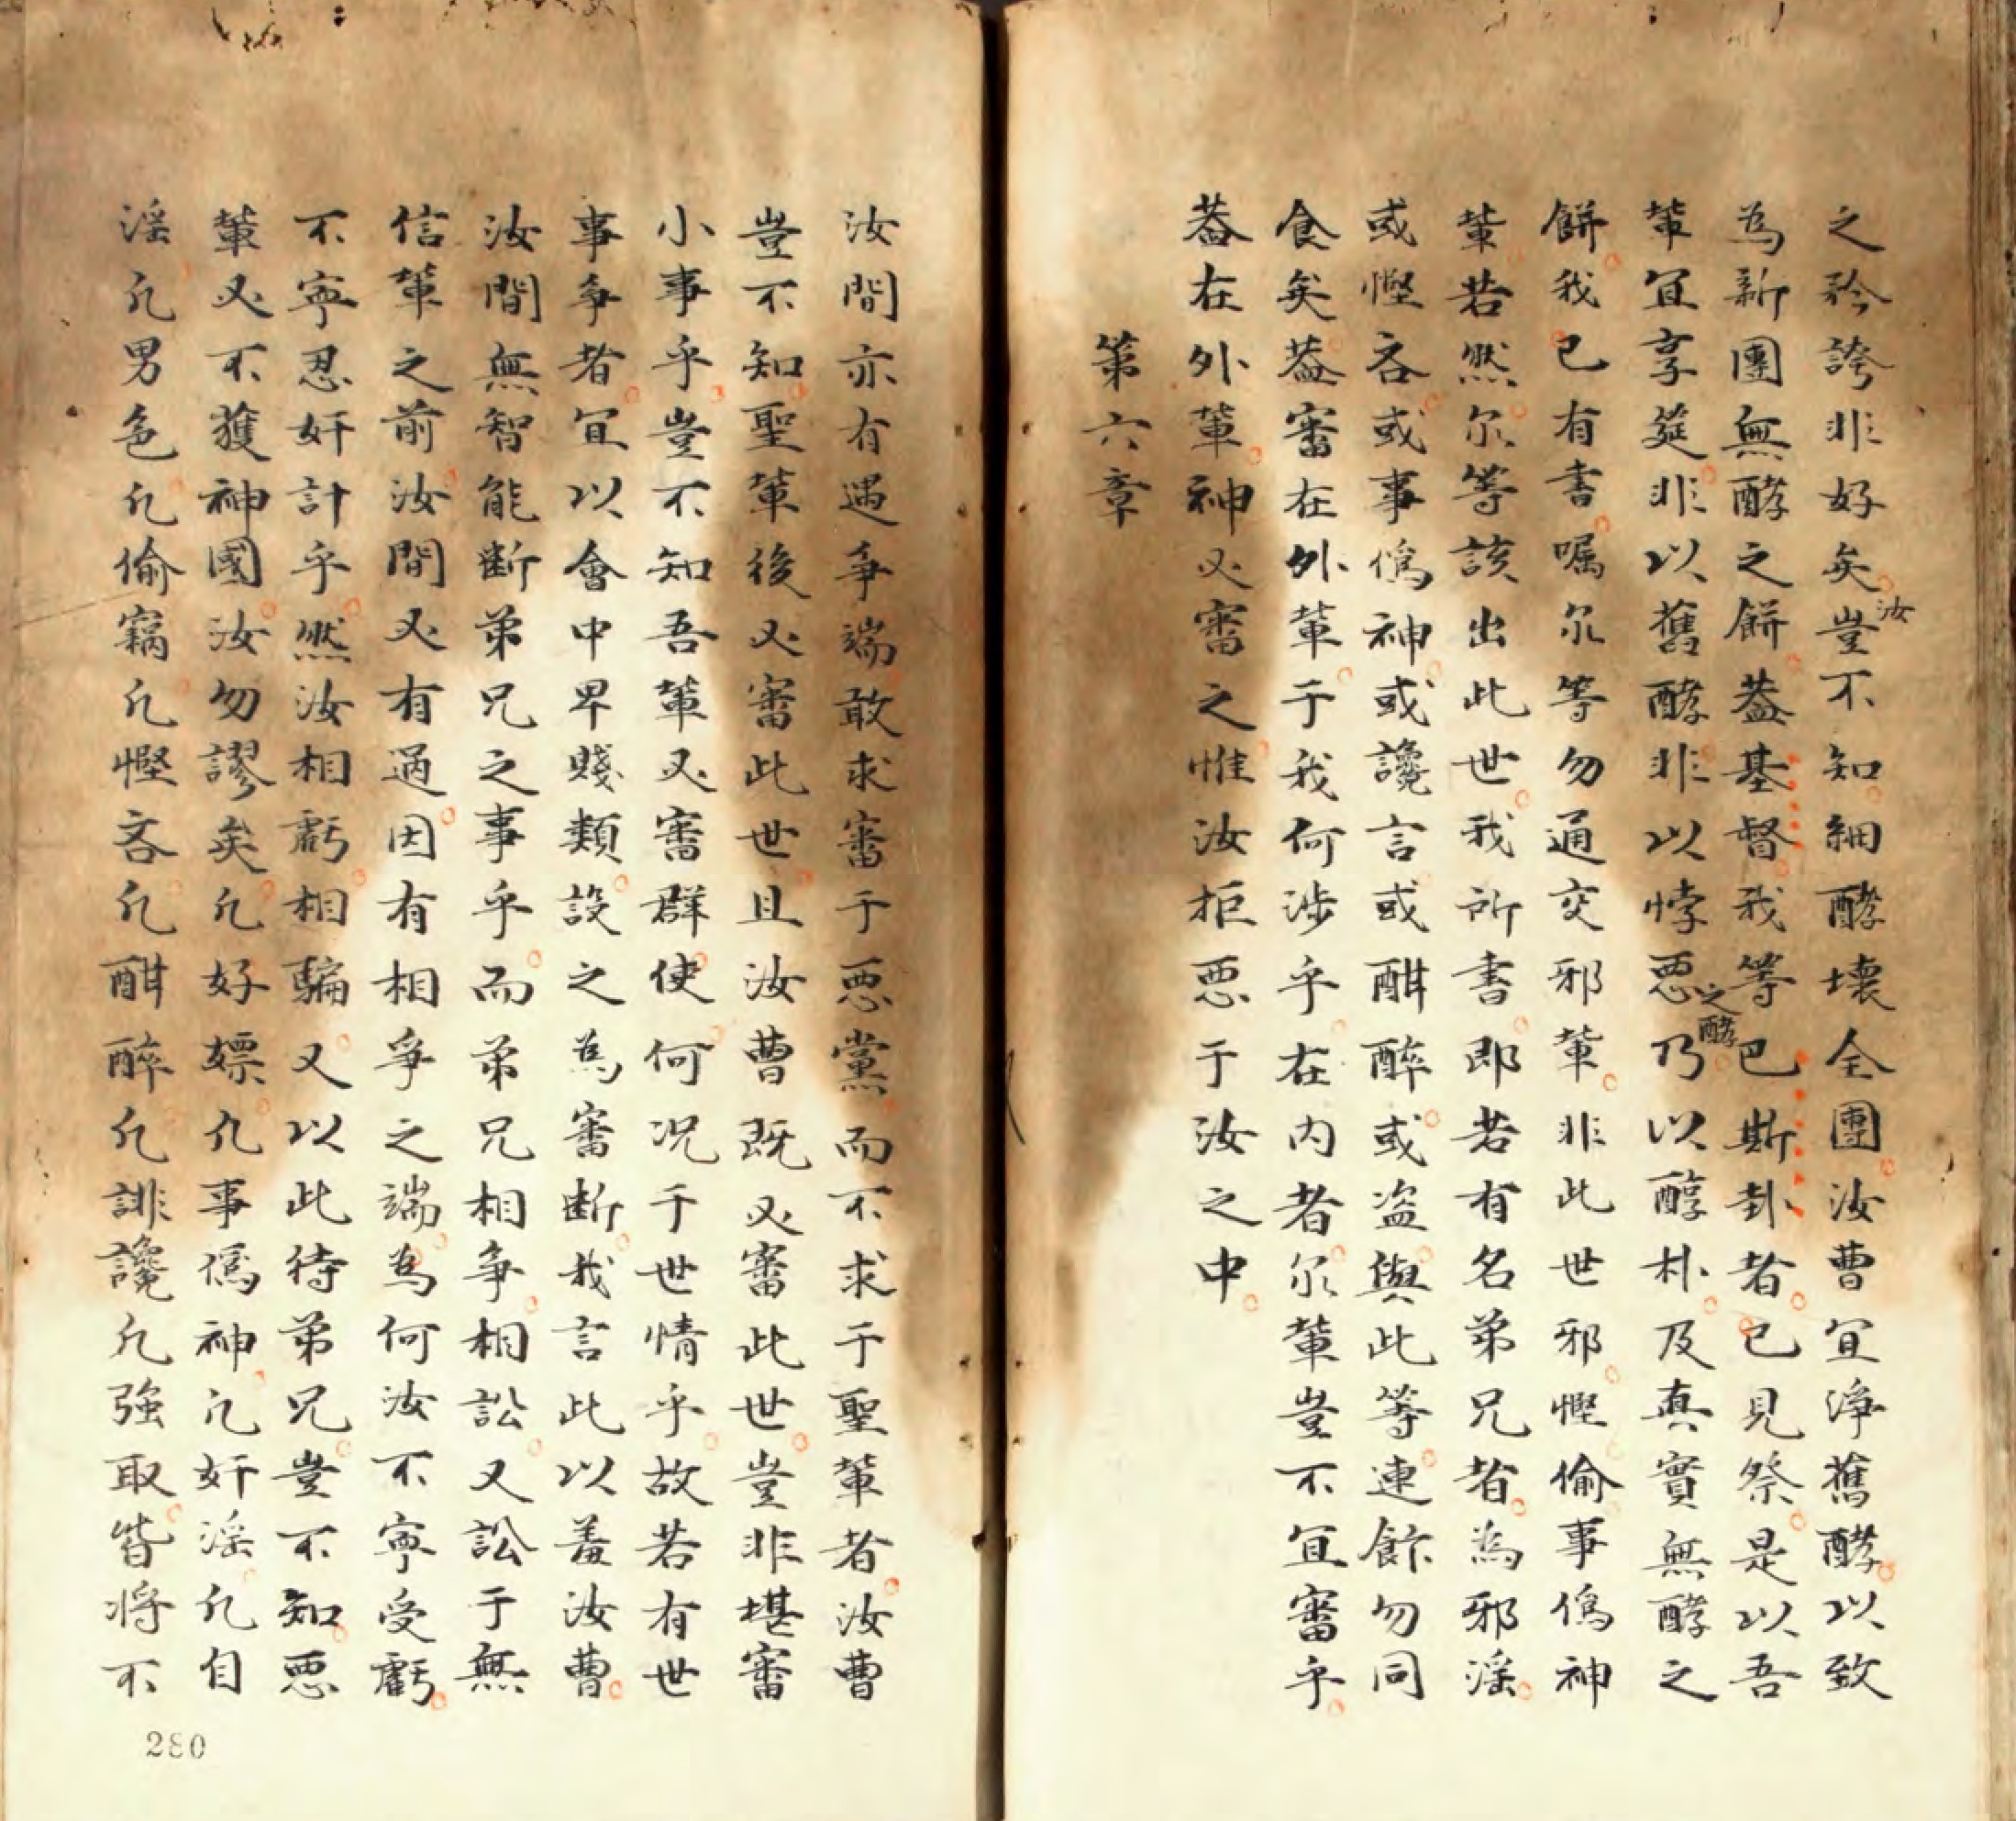 之矜誇非好矣汝豈不知細酵壞全團汝曹宜淨舊酵以致
為新團無酵之餅蓋基督我等巴斯卦者已見祭是以吾
輩宜享筵非以舊酵非以悖惡之酵乃以醇朴及真實無酵之
餅我已有書嘱尔等勿通交邪輩非此世邪慳偷事偽神
輩若然尔等該出此世我所書即若有名弟兄者為邪淫
或慳吝或事偽神或讒言或酣醉或盜與此等連飭勿同
食矣蓋審在外輩于我何涉乎在内者尔輩豈不宜審乎
蓋在外輩神必審之惟汝拒惡于汝之中
第六章
汝間亦有遇爭端敢求審于惡黨而不求于聖輩者汝曹
豈不知聖輩後必審此世且汝曹既必審此世豈非堪審
小事乎豈不知吾輩必審群使何况于世情乎故若有世
事爭者宜以會中卑賤類設之為審断我言此以羞汝曹
汝間無智能断弟兄之事乎而弟兄相爭相訟又訟于無
信輩之前汝間必有過因有相爭之端為何汝不寧受虧
不寧忍奸計乎然汝相虧相騙又以此待弟兄豈不知惡
輩必不獲神國汝勿謬矣凢好嫖凢事偽神凢奸淫凢自
淫凢男色凢偷竊凢慳吝凢酣醉凢誹讒凢強取皆将不
280